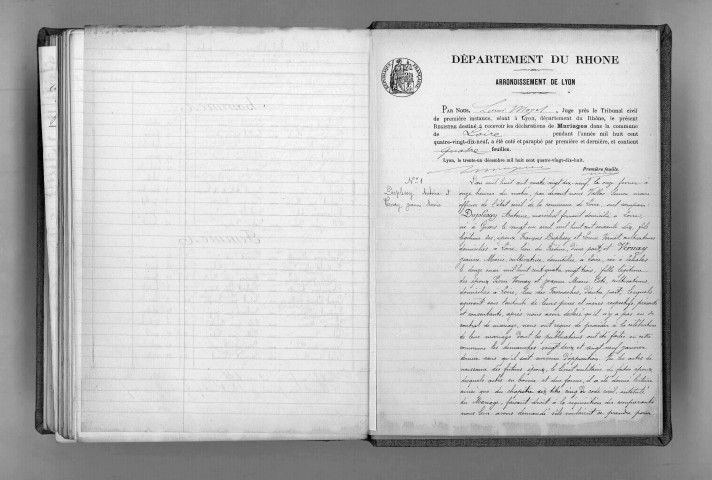 DÉPARTEMENT DU RHONE
ARRONDISSEMENT DE LYON
PAR NOUS, Juge près le Tribunal civil
de première instance, séant à Lyon, département du Rhône, le présent
REGISTRE destiné à recevoir les déclarations de Mariages dans la commune
de Loire pendant l'année mil huit cent
quatre-vingt-dix-neuf, a été coté et paraphé par première et dernière, et contient
quatre feuilles.
Lyon, le trente-un décembre mil huit cent quatre-vingt-dix-huit.
Première feuille.
N° 1
Duplessy Antoine et
Vernay Jeanne Marie
L'an mil huit cent quatre vingt dix neuf, le onze février à
onze heures du matin, par devant nous
officier de l'état civil de la commune de Loire, ont comparu:
Duplessy Antoine, maréchal ferrant domicilié à Loire,
né à le vingt un avril mil huit cent soixante dix, fils
légitime des époux François Duplessy et cultivateurs
domiciliés à Loire, d'une part, et Vernay
Jeanne Marie cultivatrice domiciliée à Loire, née à
le douze mars mil huit cent quatre vingt trois, fille légitime
des époux Pierre Vernay et Jeanne Marie cultivateurs
domiciliés à Loire, d'autre part, lesquels
agissant sous l'autorité de leurs pères et mères respectifs présents
et consentants, après nous avoir déclaré qu'il n'y a pas eu de
contrat de mariage, nous ont requis de procéder à la célébration
de leur mariage dont les publications ont été faites en cette
commune les dimanches vingt deux et vingt neuf janvier
dernier sans qu'il soit survenu d'opposition. Vu les actes de
naissance des futurs époux, le livret militaire du futur époux
desquels actes en bonne et due forme, il a été donné lecture
ainsi que du chapitre six, titre cinq du code civil, intitulé
du Mariage, faisant droit à la réquisition des comparants
nous leur avons demandé s'ils voulaient se prendre pour